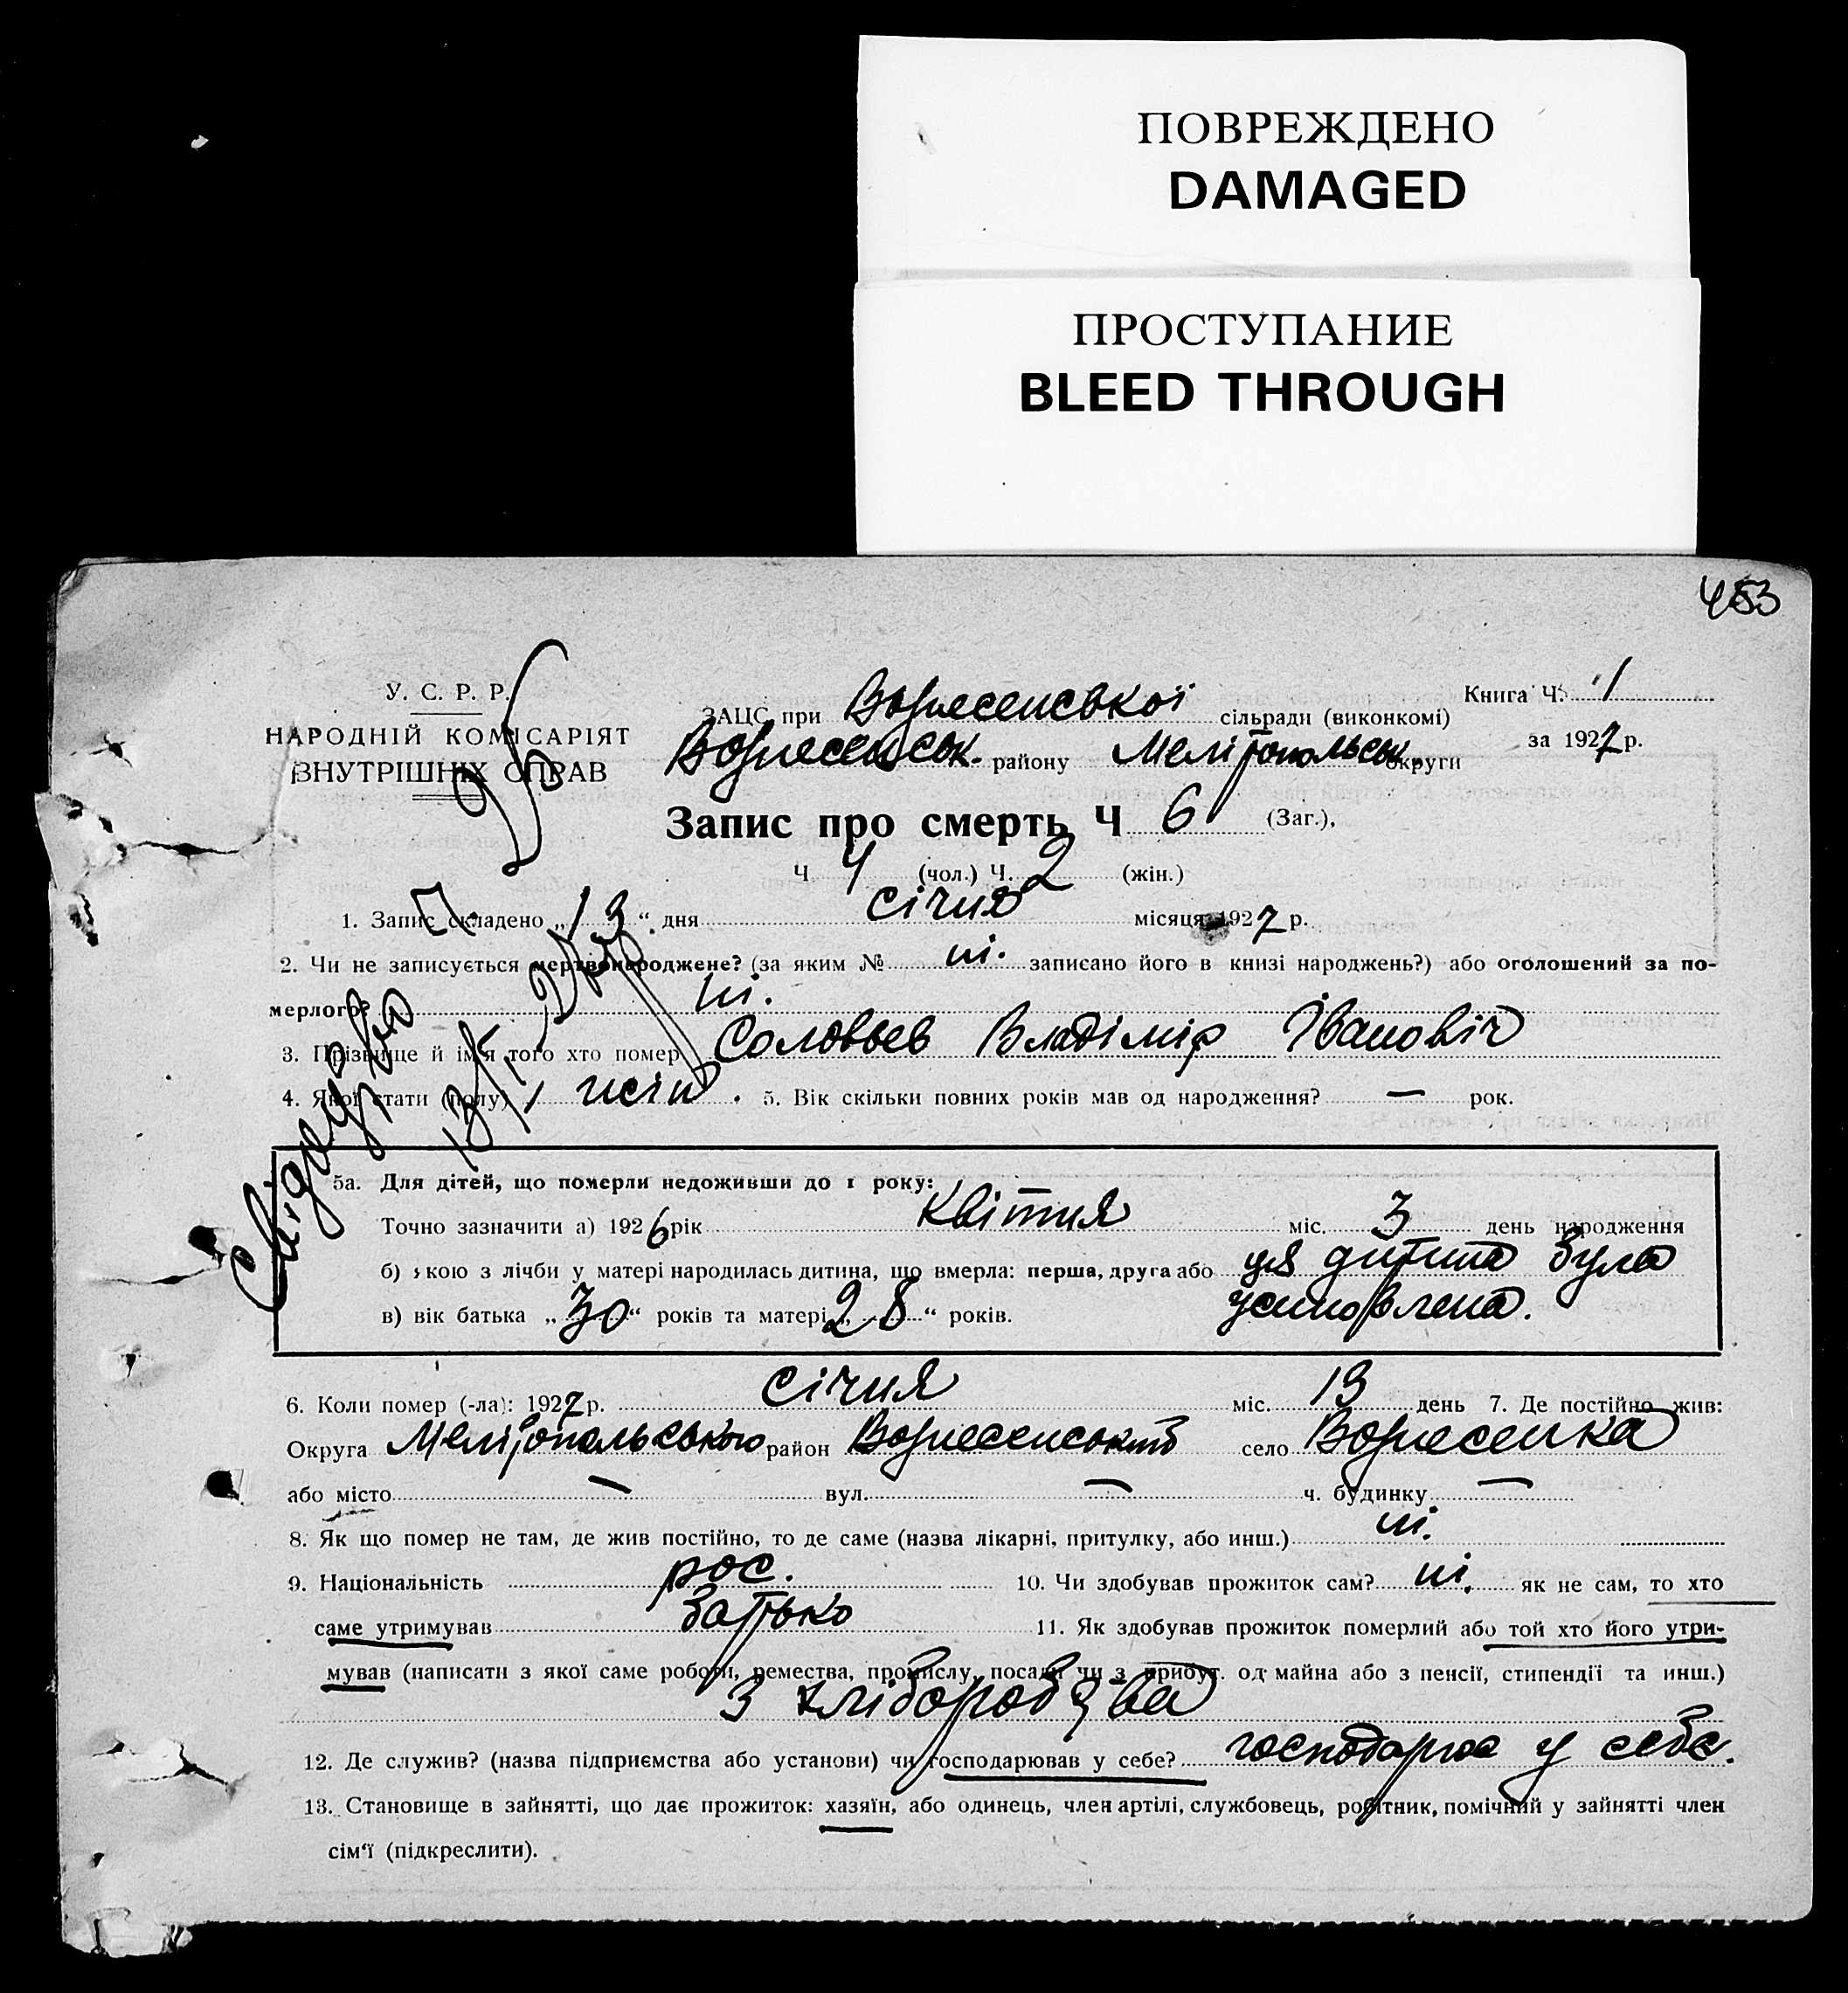 ПОВРЕЖДЕНО
DAMAGED
ПРОСТУПАНИЕ
BLEED THROUGH
453
У. С. Р. Р.
НАРОДНІЙ КОМІСАРІЯТ
ВНУТРІШНІХ СПРАВ
Книга Ч. 1
ЗАЦС при Вознесенської сільради (виконкомі)
за 1927 р.
Вознесенськ. району Мелітопольськ. округи
Запис про смерть Ч 6 (Заг.),
Ч 4 (чол.) Ч. 2 (жін.)
1. Запис складено „13“ дня січня місяця 1927 р.
2. Чи не записується мертвонароджене? (за яким № ні. записано його в книзі народжень?) або оголошений за по-
мерлого? ні.
3. Прізвище й ім'я того хто помер Соловьев Владімір Івановіч
4. Якої стати (полу) чол. 5. Вік скільки повних років мав од народження? — рок.
5а. Для дітей, що померли недоживши до 1 року:
Точно зазначити а) 1926 рік Квітня міс. 3 день народження
б) якою з лічби у матері народилась дитина, що вмерла: перша, друга або ця дитина була
усиновлена.
в) вік батька „30“ років та матері „28“ років.
6. Коли помер (-ла): 1927 р. січня міс. 13 день 7. Де постійно жив:
Округа Мелітопольського район Вознесенський село Вознесенка
або місто — вул. — ч. будинку —
8. Як що помер не там, де жив постійно, то де саме (назва лікарні, притулку, або инш.) ні.
9. Національність рос. 10. Чи здобував прожиток сам? ні. як не сам, то хто
саме утримував батько 11. Як здобував прожиток померлий або той хто його утри-
мував (написати з якої саме роботи, ремества, промислу, посади чи з прибут. од майна або з пенсії, стипендії та инш.)
З хліборобства
12. Де служив? (назва підприємства або установи) чи господарював у себе? господарює у себе.
13. Становище в зайнятті, що дає прожиток: хазяїн, або одинець, член артілі, службовець, робітник, помічний у зайнятті член
сім'ї (підкреслити).